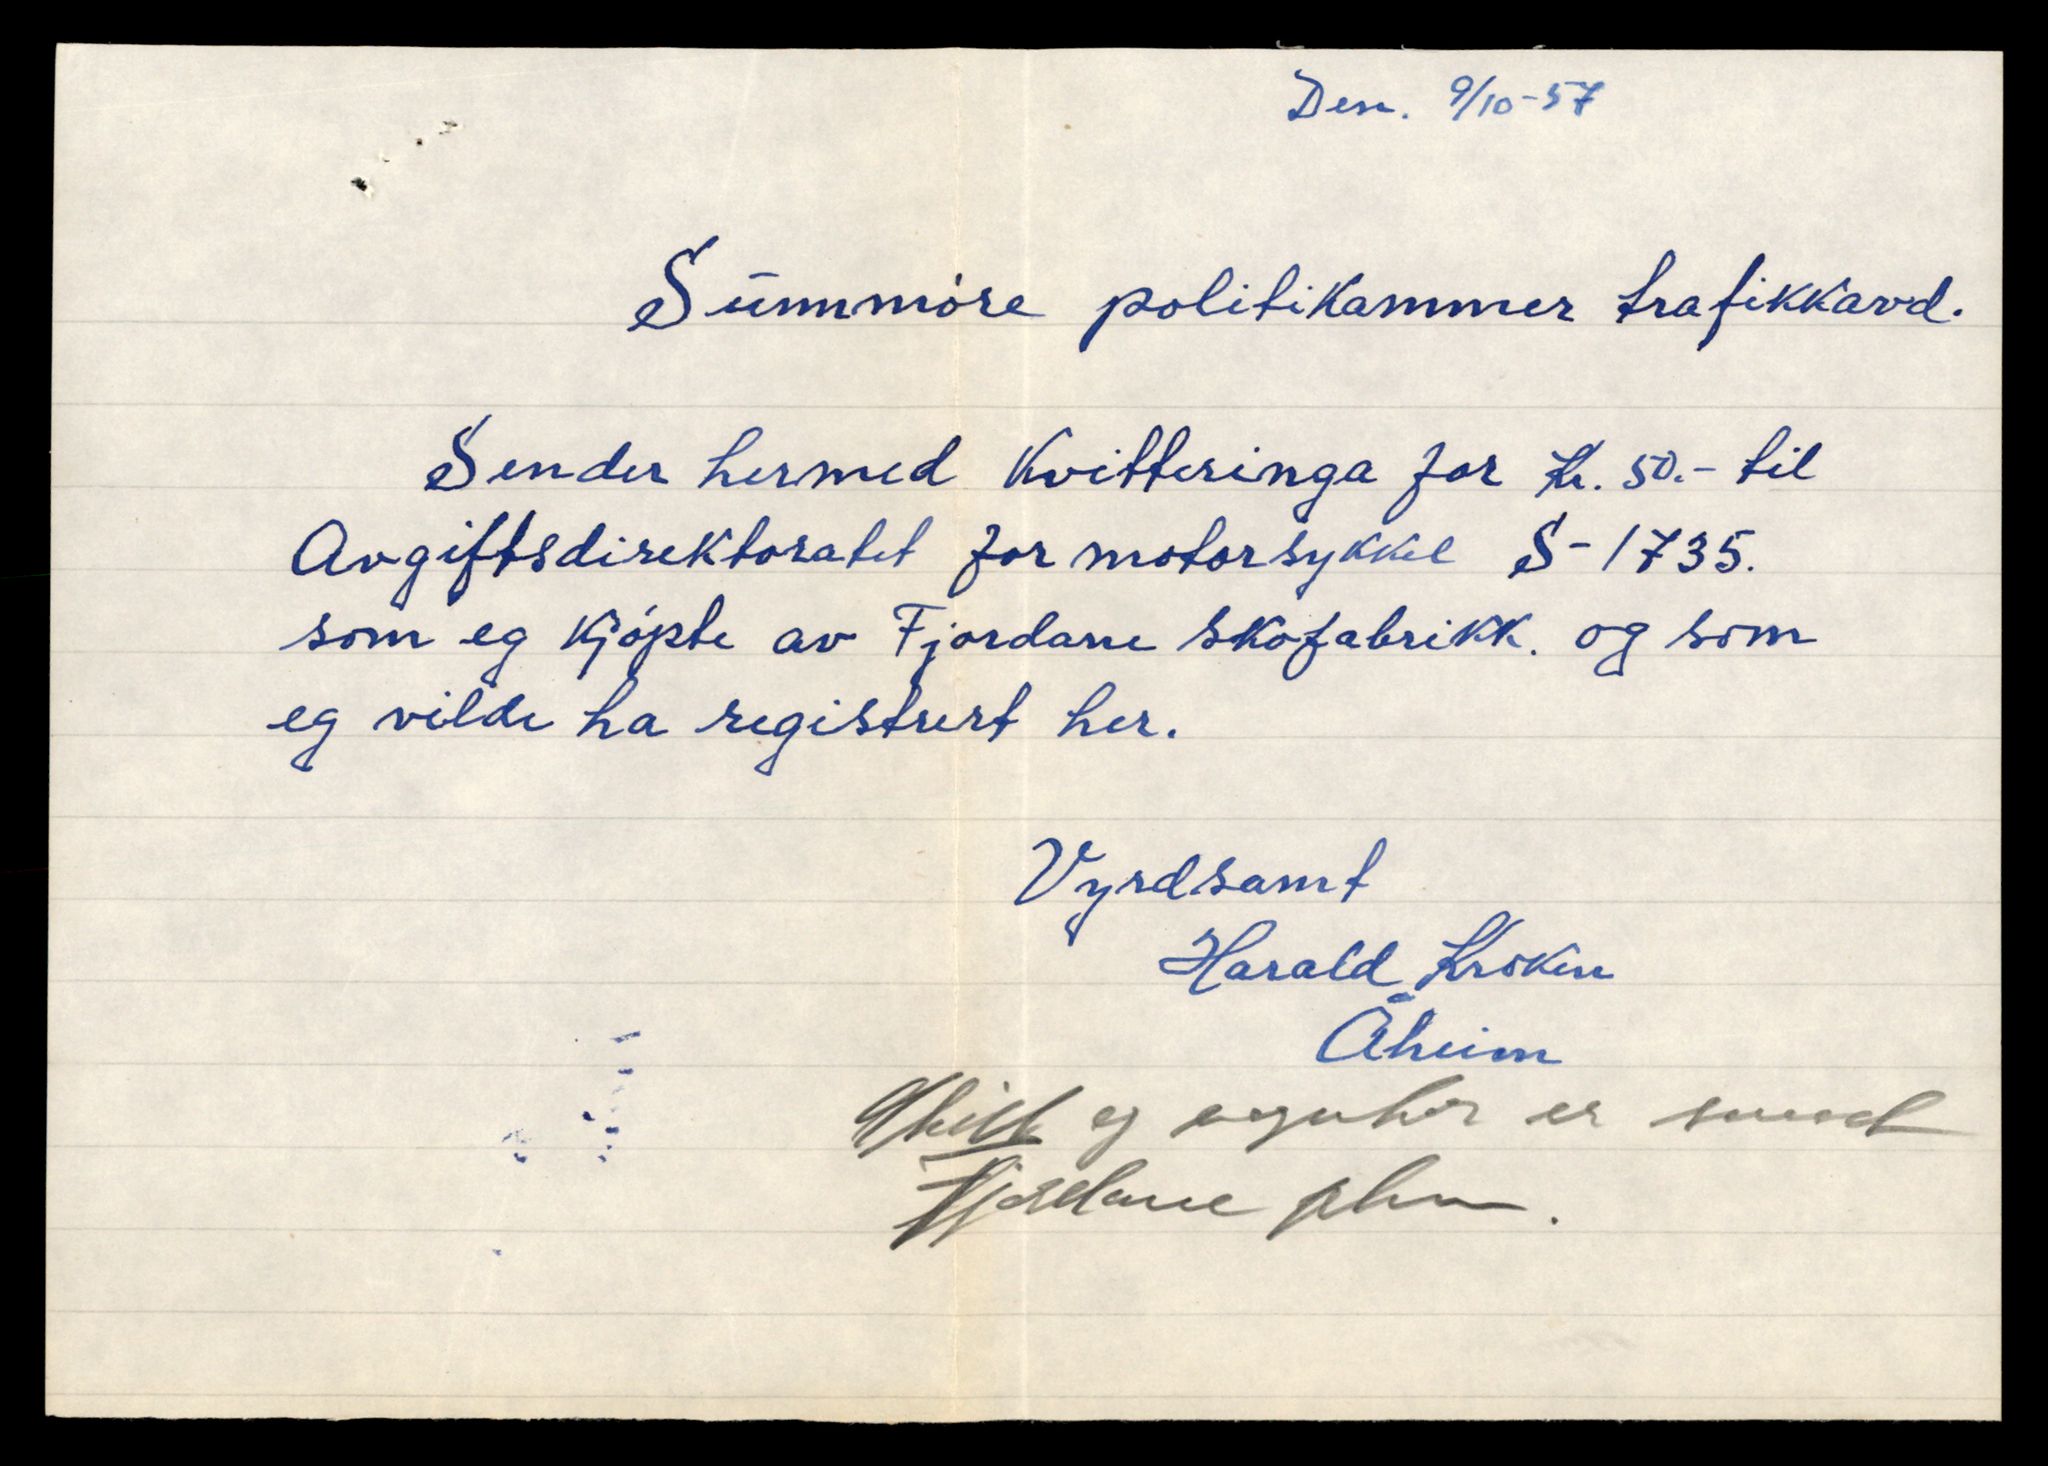 Den. 9/10-57
Sunnmóre politikammer trafikkavd.
Sender hermed kvitteringa for kr. 50.- til
Avgiftsdirektoratet for motorsykkel S-1735.
som eg kjópte av Fjordane skofabrikk. og som
eg vilde ha registrert her.
Vyrdsamt
Harald Kroken
Åheim
Skilt og vognkor er send
Fjordane pkm.